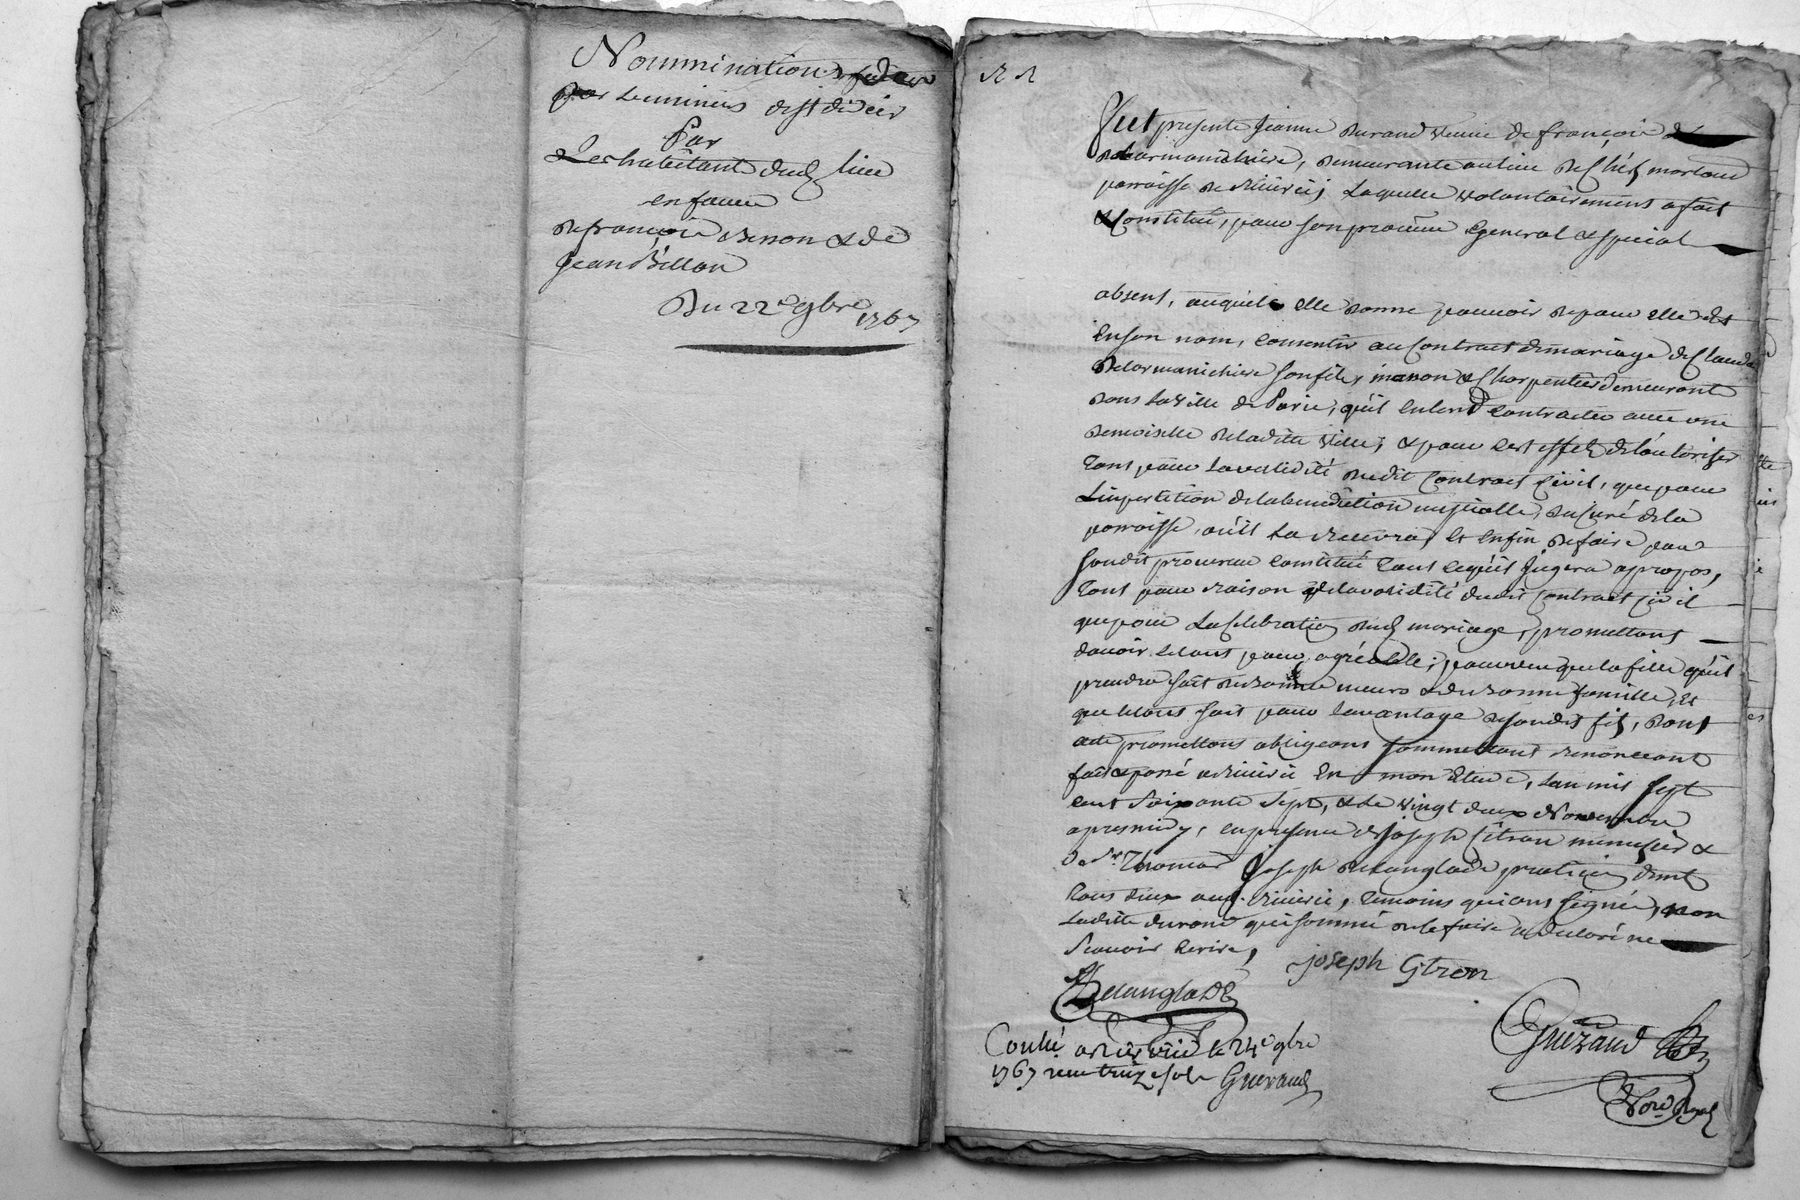 Nommination
Par
Les habitants dud. lieu
en faveur
de françois Besson & de
Jean Billon
Du 22e 9bre 1767
Fut presente Jeanne Durand veuve de françois de
Delormanichiere, demeurante au lieu de Chés
parroisse de, Laquelle volontairement a fait
& Constitué, pour son procureur general & special
absent, auquel elle donne pouvoir de pour elle et
En son nom, consentir au Contract de mariage de Claude
Delormanichiere son fils, maçon & Charpentier demeurant
dans la ville de Paris, qu'il entend contracter avec une
demoiselle de laditte ville; & pour cest effet de l'autoriser
Tant pour la validité dudit Contract Civil, que pour
L'impertition de la benediction nuptialle, du Curé de la
parroisse, où il la recevra, Et enfin de faire par
sondit procureur constitué tout ce qu'il Jugera apropos,
Tant pour raison de la validité dudit Contract Civil
que pour La Celebration dud. mariage, promettant
d'avoir le tout pour agréable; pourveu que la fille qu'il
prendra soit de bonne meurs & de bonne famille, Et
que le tout soit pour l'avantage de sondit fils, dont
acte promettant obligeant sommettant renonceant
fait & passé En mon Etude, L'an mil sept
cent soixante sept, & le vingt deux Novembre
apres midy, en presence de Joseph Citron menusier &
de Sr. Thomas Joseph Delanglade praticien dmt
Tous deux aud., Temoins qui ont signé, non
Laditte durand qui sommé de le faire a declaré ne
scavoir Ecrire,
Joseph Gtron
Delanglade
Guéraud
Conllé a le 24e 9bre
1767 reçu treize sols Gueraud